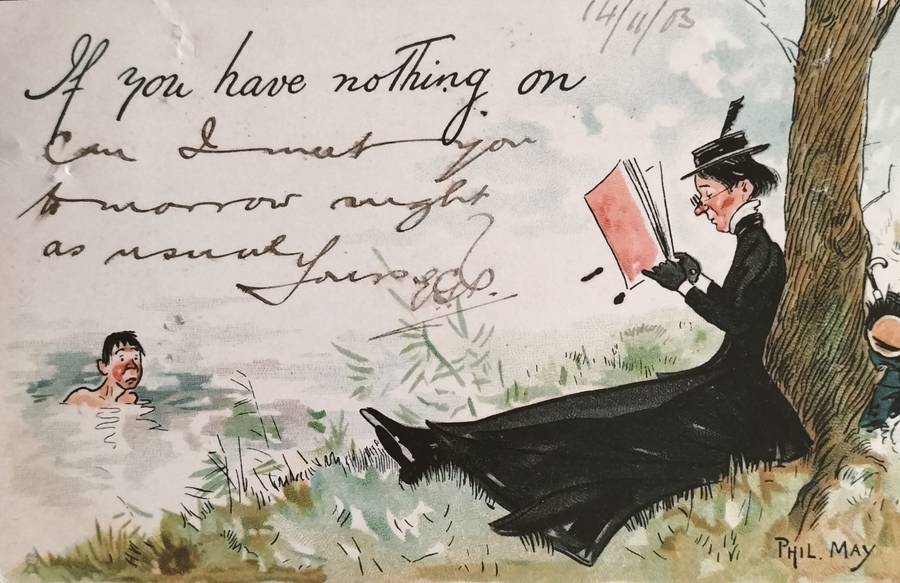 14/11/03
If you have nothing on
Can I meet you
tomorrow night
as usual?
Yours
PHIL. MAY